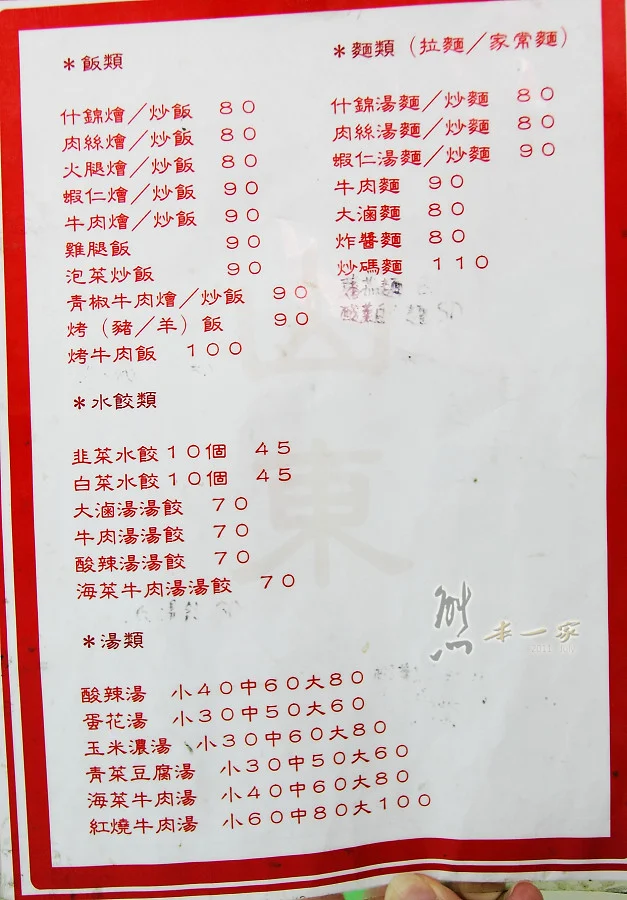 ＊飯類
什錦燴／炒飯　８０
肉絲燴／炒飯　８０
火腿燴／炒飯　８０
蝦仁燴／炒飯　９０
牛肉燴／炒飯　９０
雞腿飯　９０
泡菜炒飯　９０
青椒牛肉燴／炒飯　９０
烤（豬／羊）飯　９０
烤牛肉飯　１００
＊水餃類
韭菜水餃１０個　４５
白菜水餃１０個　４５
大滷湯湯餃　７０
牛肉湯湯餃　７０
酸辣湯湯餃　７０
海菜牛肉湯湯餃　７０
＊湯類
酸辣湯　小４０中６０大８０
蛋花湯　小３０中５０大６０
玉米濃湯　小３０中６０大８０
青菜豆腐湯　小３０中５０大６０
海菜牛肉湯　小４０中６０大８０
紅燒牛肉湯　小６０中８０大１００
＊麵類（拉麵／家常麵）
什錦湯麵／炒麵　８０
肉絲湯麵／炒麵　８０
蝦仁湯麵／炒麵　９０
牛肉麵　９０
大滷麵　８０
炸醬麵　８０
炒碼麵　１１０
山東
熊本一家
2011 July